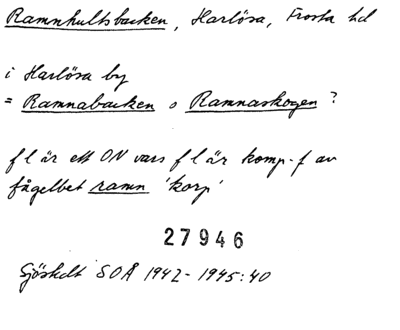 Ramnhultsbacken, Harlösa, Frosta hd
i Harlösa by
= Ramnabacken o Ramnaskogen?
f l är ett ON vars f l är komp.-f av
fågelbet ramn 'korp'
27946
Sjöstedt SOÅ 1942-1945:40